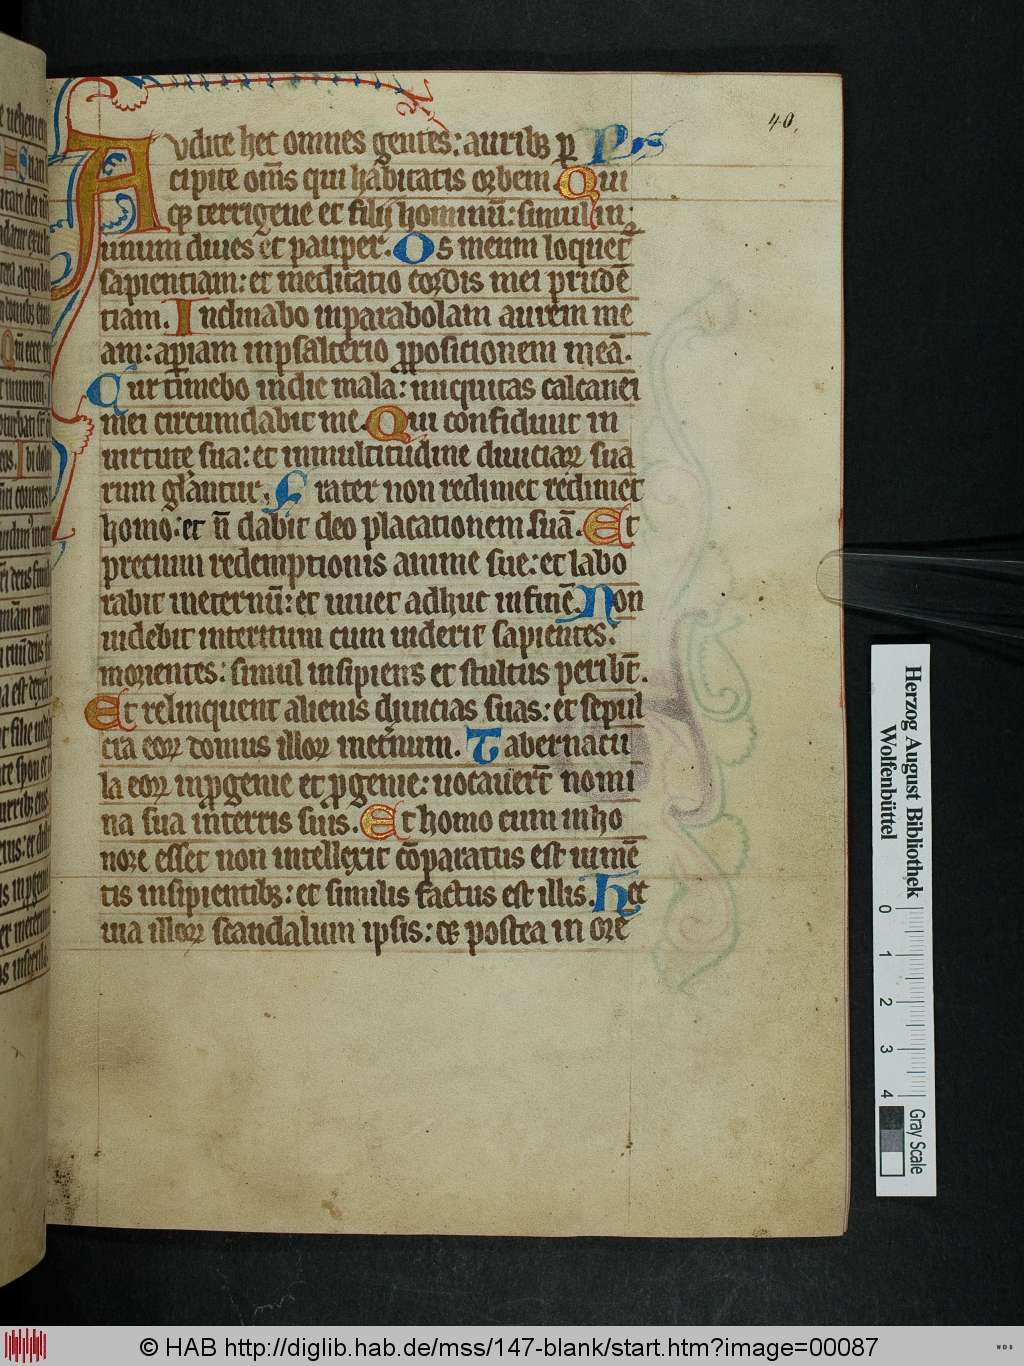 40.
Audite hec omnes gentes: auribꝫ ꝑ Ps
cipite om̄s qui habitatis orbem. Qui
qꝫ terrigene et filij hominū: simul in
unum diues et pauper. Os meum loquet᷑
sapientiam: et meditatio cordis mei prudē
tiam. Inclinabo in parabolam aurem me
am: aperiam in psalterio ꝓposicionem meā.
Cur timebo in die mala: iniquitas calcanei
mei circumdabit me. Qui confidunt in
uirtute sua: et in multitudine diuiciaꝝ sua
rum gl̄antur. Frater non redimet redimet
homo: et n̄ dabit deo placationem suā. Et
precium redemptionis anime sue: et labo
rabit in eternū: et uiuet adhuc in finē. Non
uidebit interitum cum uiderit sapientes
morientes: simul insipiens et stultus peribt̄.
Et relinquent alienis diuicias suas: et sepul
cra eoꝝ domus illoꝝ in et̄num. Tabernacu
la eoꝝ in ꝓgenie et ꝓgenie: uocauer̄t nomi
na sua in terris suis. Et homo cum in ho
nore esset non intellexit cōparatus est iumē
tis insipientibꝫ: et similis factus est illis. Hec
uia illoꝝ scandalum ipsis: et postea in ore
Herzog August Bibliothek
Wolfenbüttel
0 1 2 3 4
Gray Scale
© HAB http://diglib.hab.de/mss/147-blank/start.htm?image=00087